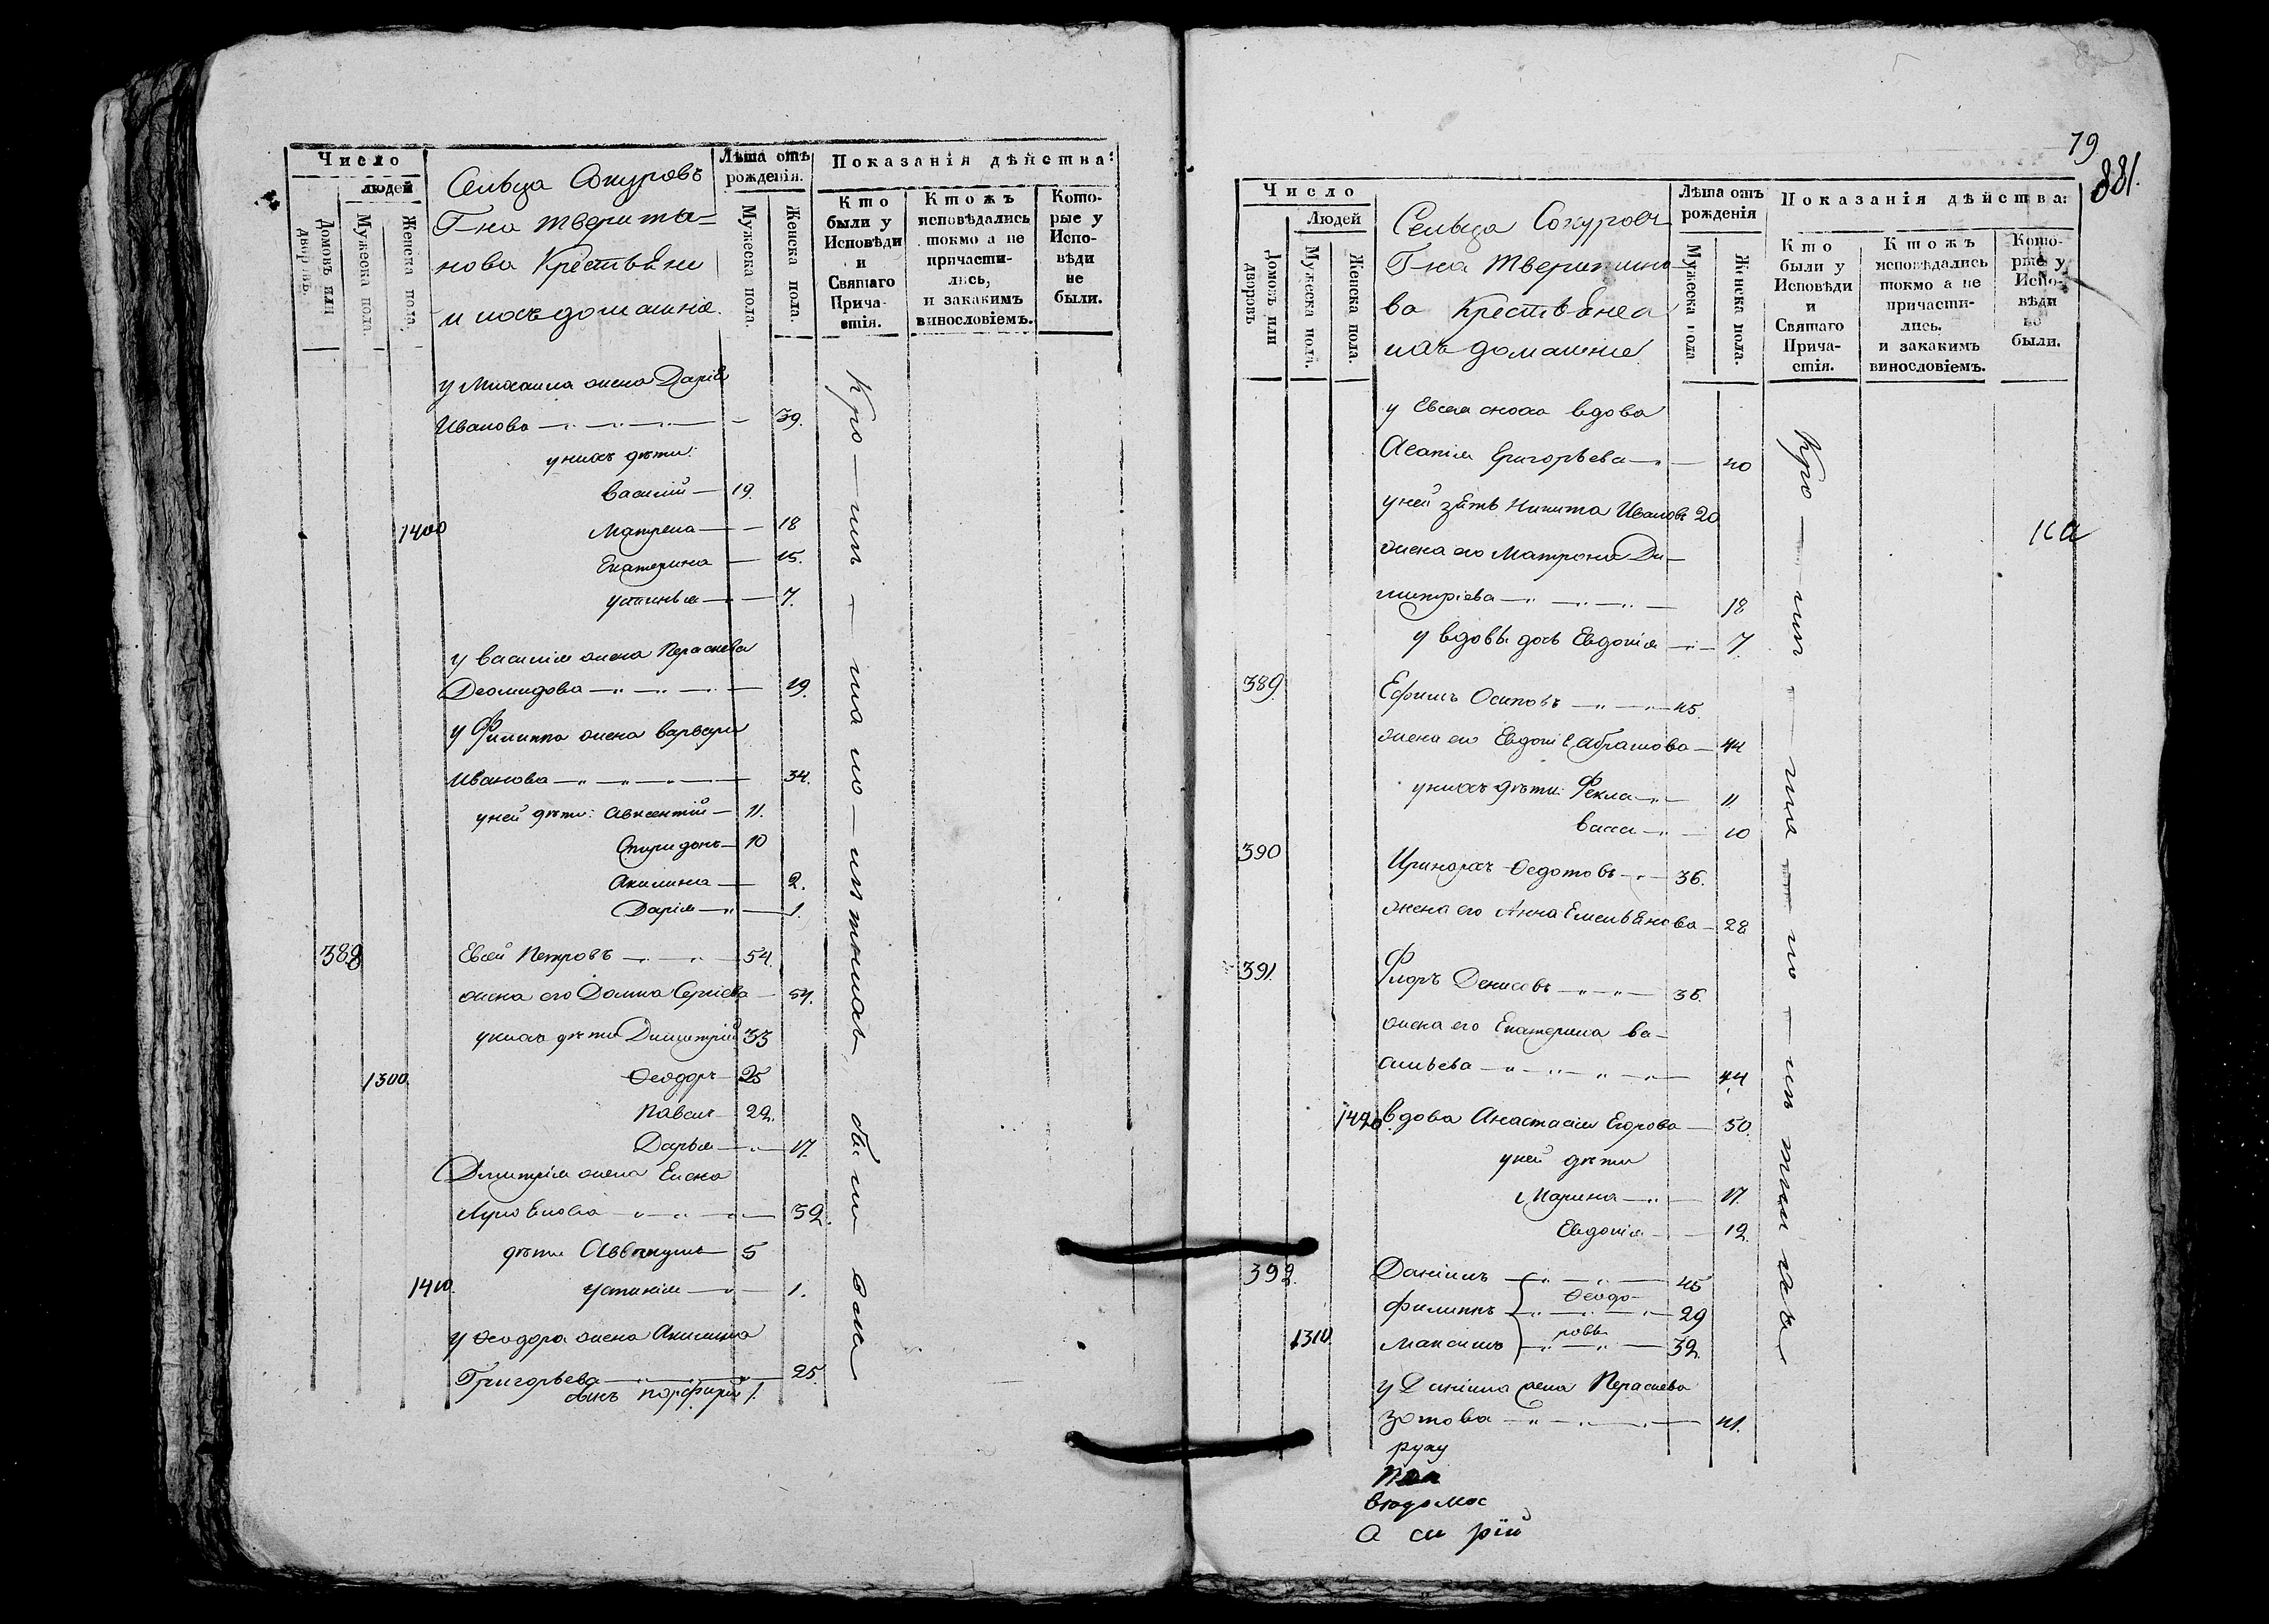 Число
людей
Домовъ или дворовъ.
Мужеска пола.
Женска пола.
Сельца Сокуровъ
Г-на тверити-
нова Крестьяне
и ихъ домашніе.
Лѣта отъ рожденія.
Мужеска пола.
Женска пола.
Показанія дѣйства:
Кто были у Исповѣди и Святаго Прича-стія.
Ктожъ исповѣдались токмо а не причасти-лись, и закакимъ винословіемъ.
Кото-рые у Испо-вѣди не были.
у Михаила жена Дарія
Иванова 39.
у нихъ дѣти:
Василій 19.
1400 Матрена 18
Екатерина 15.
Устинья 7.
у Василія жена Параскева
Деомидова 19.
у Филиппа жена Варвара
Иванова 34.
у ней дѣти: Авксентій 11.
Спиридонъ 10
Акилина 2.
Дарія 1.
388 Евсей Петровъ 54.
жена его Домна Сергіева 54.
у нихъ дѣти Димитрій 33
1300. Ѳеодоръ 25
Павелъ 22.
Дарья 17.
Димитрія жена Елена
Лукоянова 32.
дѣти Аввакумъ 5
1410. Устинія 1.
у Ѳеодора жена Акилина
Григорьева 25.
сынъ Порфирій 1.
были вси
79
881.
Число
Людей
Домовъ или дворовъ
Мужеска пола.
Женска пола.
Сельца Сокуровъ
Г-на Тверитино-
ва Крестьяне и
ихъ домашніе
Лѣта отъ рожденія
Мужеска пола
Женска пола.
Показанія дѣйства:
Кто были у Исповѣди и Святаго Прича-стія.
Ктожъ исповѣдались токмо а не причасти-лись. и закакимъ винословіемъ.
Кото-рые у Испо-вѣди не были.
у Евсея сноха вдова
Агапія Григорьева 40
у ней зять Никита Ивановъ 20
жена его Матрона Ди-
митріева 18
у вдовы дочь Евдокія 7.
389. Ефимъ Осиповъ 45.
жена его Евдокія Абрамова 44
у нихъ дѣти: Фекла 11
Васса 10
390 Иринархъ Ѳедотовъ 36.
жена его Анна Емельянова 28
391. Флоръ Денисовъ 35.
жена его Екатерина Ва-
сильева 44
1420. вдова Анастасія Егорова 50.
у ней дѣти
Марина 17.
Евдокія 12.
392. Даніилъ 45
Ѳеодо-
Филиппъ 29
ровы
1310. Максимъ 32.
у Даніила жена Параскева
Зотова 41.
руку
вѣдомос